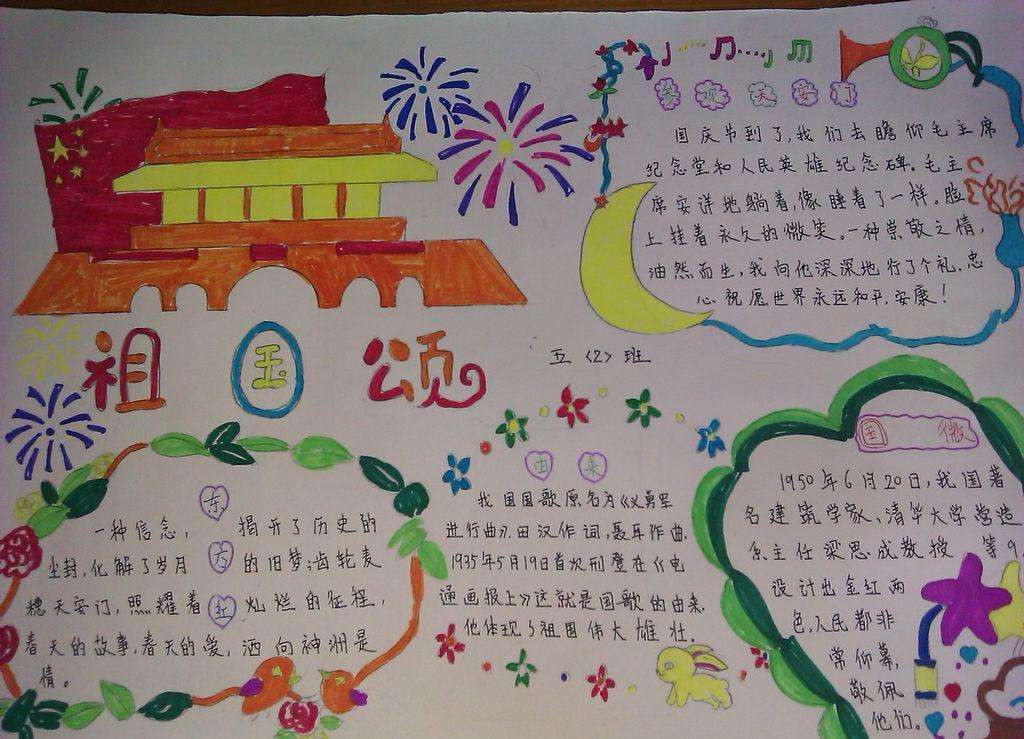 参观天安门
国庆节到了,我们去瞻仰毛主席
纪念堂和人民英雄纪念碑。毛主
席安详地躺着,像睡着了一样。脸
上挂着永久的微笑。一种崇敬之情,
油然而生,我向他深深地行了个礼.忠
心祝愿世界永远和平,安康!
祖国颂
五〈2〉班
东方红
一种信念,揭开了历史的
尘封,化解了岁月的旧梦;齿轮麦
穗天安门,照耀着灿烂的征程,
春天的故事,春天的爱,洒向神洲是
情。
由来
我国国歌原名为《义勇军
进行曲》.田汉作词,聂耳作曲.
1935年5月19日首次刑登在《电
通画报上》这就是国歌的由来.
他体现了祖国伟大雄壮.
国 微
1950年6月20日,我国著
名建筑学家、清华大学营造
系主任梁思成教授 等9
设计出金红两
色,人民都非
常仰幕,
敬佩
他们。